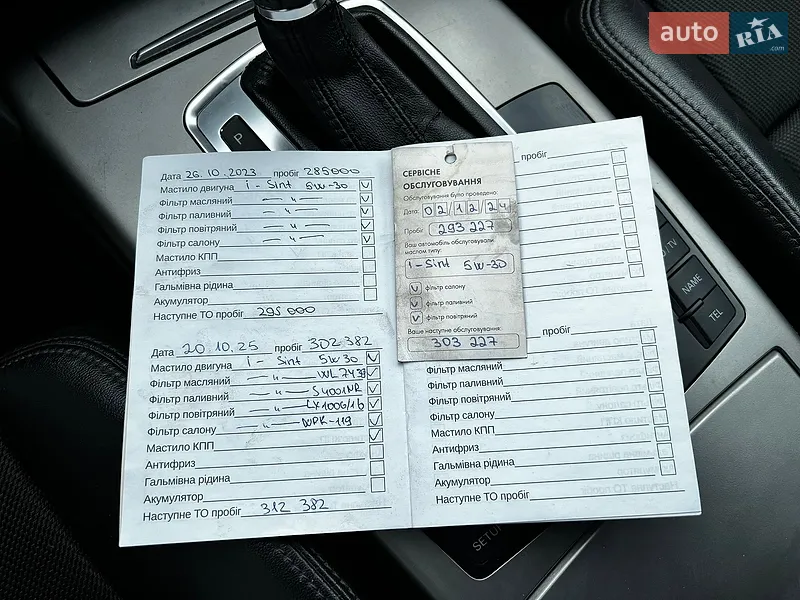 auto RIA.com
P
Дата 26.10.2023 пробіг 285000
Мастило двигуна i-Sint 5W-30
Фільтр масляний —"—
Фільтр паливний —"—
Фільтр повітряний —"—
Фільтр салону —"—
Мастило КПП
Антифриз
Гальмівна рідина
Акумулятор
Наступне ТО пробіг 295 000
Дата 20.10.25 пробіг 302 382
Мастило двигуна i-Sint 5W30
Фільтр масляний —"— WL7439
Фільтр паливний —"— S4001NR
Фільтр повітряний —"— LX1006/1b
Фільтр салону —"— WPK-119
Мастило КПП
Антифриз
Гальмівна рідина
Акумулятор
Наступне ТО пробіг 312 382
СЕРВІСНЕ
ОБСЛУГОВУВАННЯ
Обслуговування було проведено:
Дата: 02/12/24
Пробіг 293 227
Ваш автомобіль обслуговували
маслом типу:
i-Sint 5W-30
фільтр салону
фільтр паливний
фільтр повітряний
Ваше наступне обслуговування:
303 227
пробіг
пробіг
Фільтр масляний
Фільтр паливний
Фільтр повітряний
Фільтр салону
Мастило КПП
Антифриз
Гальмівна рідина
Акумулятор
Наступне ТО пробіг
/ TV
NAME
TEL
SETUP